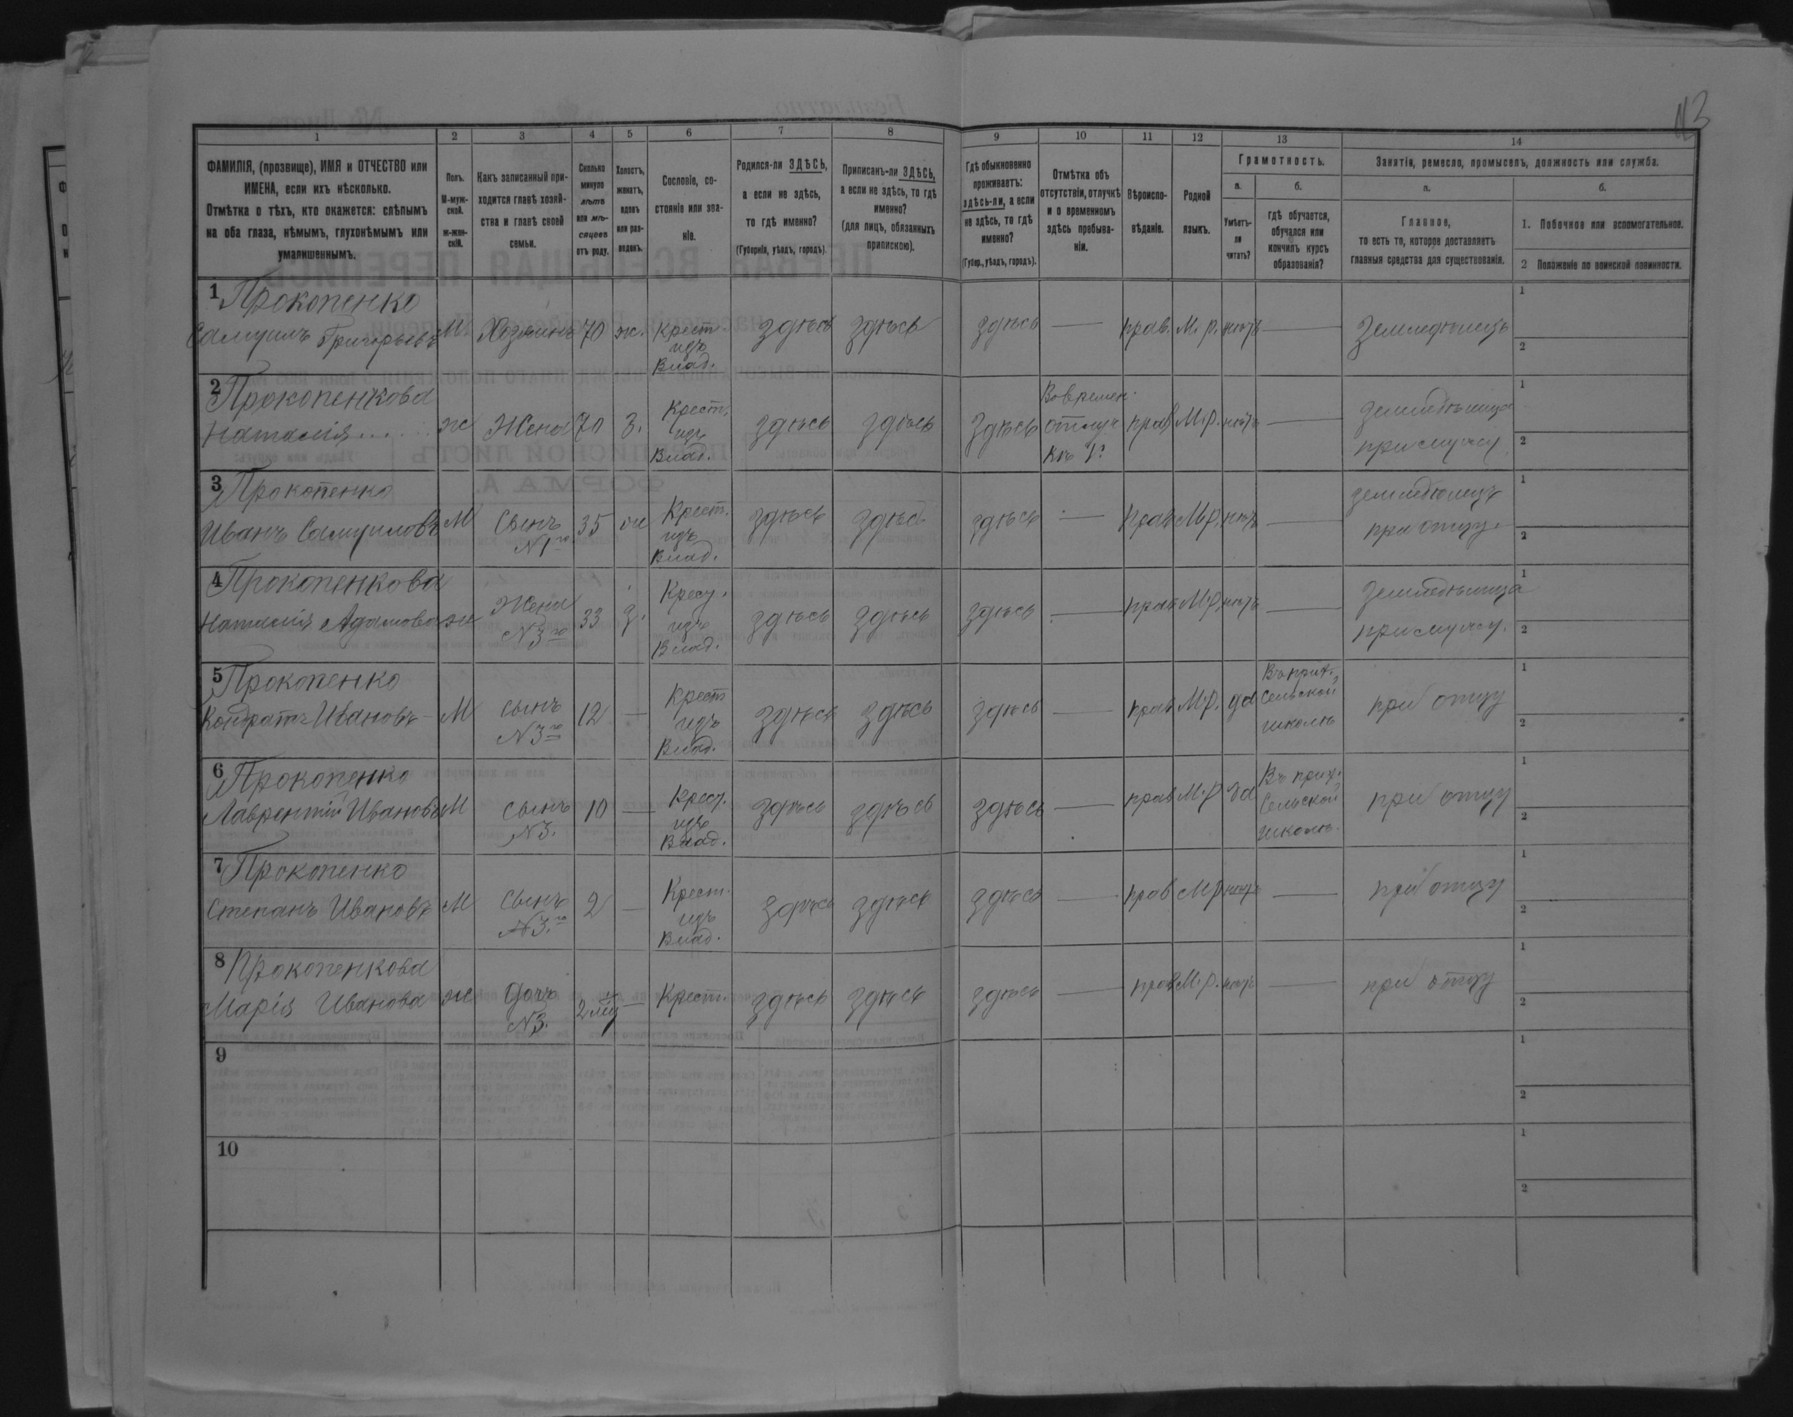 113
1 2 3 4 5 6 7 8 9 10 11 12 13 14
ФАМИЛІЯ, (прозвище), ИМЯ и ОТЧЕСТВО или
ИМЕНА, если ихъ нѣсколько.
Отмѣтка о тѣхъ, кто окажется: слѣпымъ
на оба глаза, нѣмымъ, глухонѣмымъ или
умалишеннымъ.
Полъ.
М-муж-
ской.
ж-жен-
скій.
Какъ записанный при-
ходится главѣ хозяй-
ства и главѣ своей
семьи.
Сколько
минуло
лѣтъ
или мѣ-
сяцевъ
отъ роду.
Холостъ,
женатъ,
вдовъ
или раз-
веденъ.
Сословіе, со-
стояніе или зва-
ніе.
Родился-ли ЗДѢСЬ,
а если не здѣсь,
то гдѣ именно?
(Губернія, уѣздъ, городъ).
Приписанъ-ли ЗДѢСЬ,
а если не здѣсь, то гдѣ
именно?
(для лицъ, обязанныхъ
припискою).
Гдѣ обыкновенно
проживаетъ:
здѣсь-ли, а если
не здѣсь, то гдѣ
именно?
(Губер., уѣздъ, городъ).
Отмѣтка объ
отсутствіи, отлучкѣ
и о временномъ
здѣсь пребыва-
ніи.
Вѣроиспо-
вѣданіе.
Родной
языкъ.
Грамотность.
а.
Умѣетъ-
ли
читать?
б.
гдѣ обучается,
обучался или
кончилъ курсъ
образованія?
Занятія, ремесло, промыселъ, должность или служба.
а.
Главное,
то есть то, которое доставляетъ
главныя средства для существованія.
б.
1. Побочное или вспомогательное.
2 Положеніе по воинской повинности.
1 Прокопенко
Самуилъ Григорьевъ М. Хозяинъ 70 ж. Крест.
изъ
Влад. здѣсь здѣсь здѣсь — прав. М. р. нѣтъ — Земледѣлецъ 1
2
2 Прокопенкова
Наталія ж Жена 70 З. Крест.
изъ
Влад. здѣсь здѣсь Здѣсь Вовремен.
отлуч прав М.р. нѣтъ — земледѣлица
при мужу 1
2
3 Прокопенко
Иванъ Самуиловъ М Сынъ
N1го 35 ж Крест.
изъ
Влад. здѣсь здѣсь здѣсь — прав М.р. нѣтъ — земледѣлецъ
при отцу 1
2
4 Прокопенкова
Наталія Адамова ж Жена
N3го 33 З. Крест.
изъ
Влад. здѣсь здѣсь здѣсь — прав М.р. нѣтъ — земледѣлица
при мужу. 1
2
5 Прокопенко
Кондратъ Ивановъ М сынъ
N3го 12 — Крест
изъ
Влад. здѣсь здѣсь здѣсь — прав М.р. да Въ прих.
Сельской
школѣ при отцу 1
2
6 Прокопенко
Лаврентій Ивановъ М сынъ
N3. 10 — Крест.
изъ
Влад. здѣсь здѣсь здѣсь — прав М.р да Въ прих.
Сельской
школѣ. при отцу 1
2
7 Прокопенко
Степанъ Ивановъ М сынъ
N3.го 2 — Крест.
изъ
Влад. здѣсь здѣсь здѣсь — прав М.р нѣтъ — при отцу 1
2
8 Прокопенкова
Марія Иванова ж дочь
N3. 2 — Крест. здѣсь здѣсь здѣсь — прав М.р. нѣтъ — при отцу 1
2
9 1
2
10 1
2